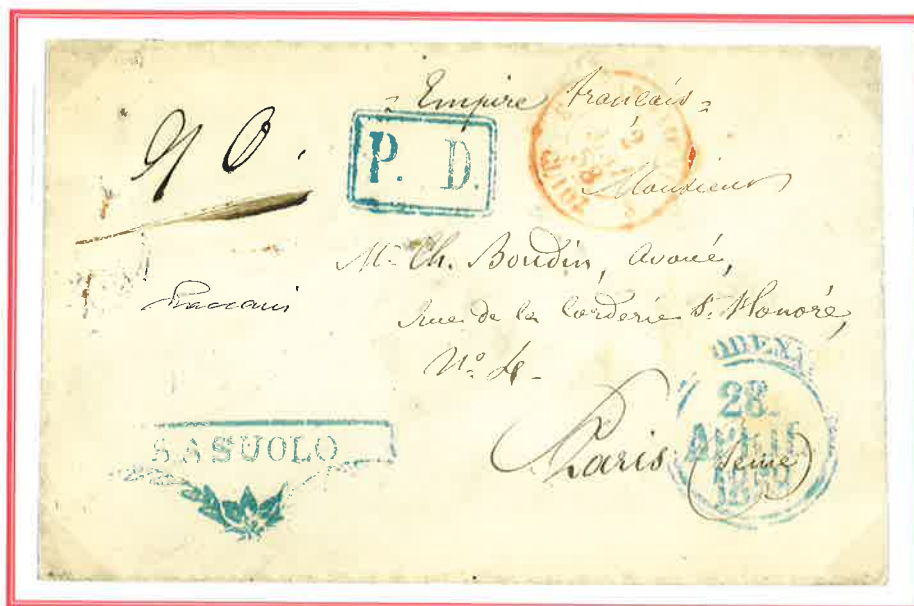 Empire français
90.
P. D.
2
58
Monsieur
Mr. Ch. Boudin, avoué,
rue de la Corderie St. Honoré,
No. 4
SASUOLO
Paris (Seine)
MODENA
28
APRILE